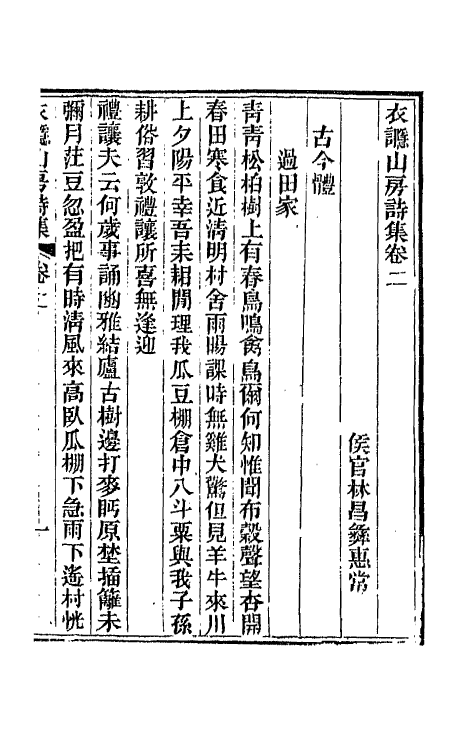 衣讔山房詩集卷二
侯官林昌彝惠常
古今體
過田家
靑靑松柏樹上有春鳥鳴禽鳥爾何知惟聞布穀聲望杏開
春田寒食近清明村舍雨暘課時無雞犬驚但見羊牛來川
上夕陽平幸吾耒耜閒理我瓜豆棚倉中八斗粟與我子孫
耕俗習敦禮讓所喜無逢迎
禮讓夫云何歲事誦豳雅結廬古樹邊打麥眄原埜插籬未
彌月莊豆忽盈把有時清風來高臥瓜棚下急雨下遙村恍
衣讔山房詩集 卷二 一